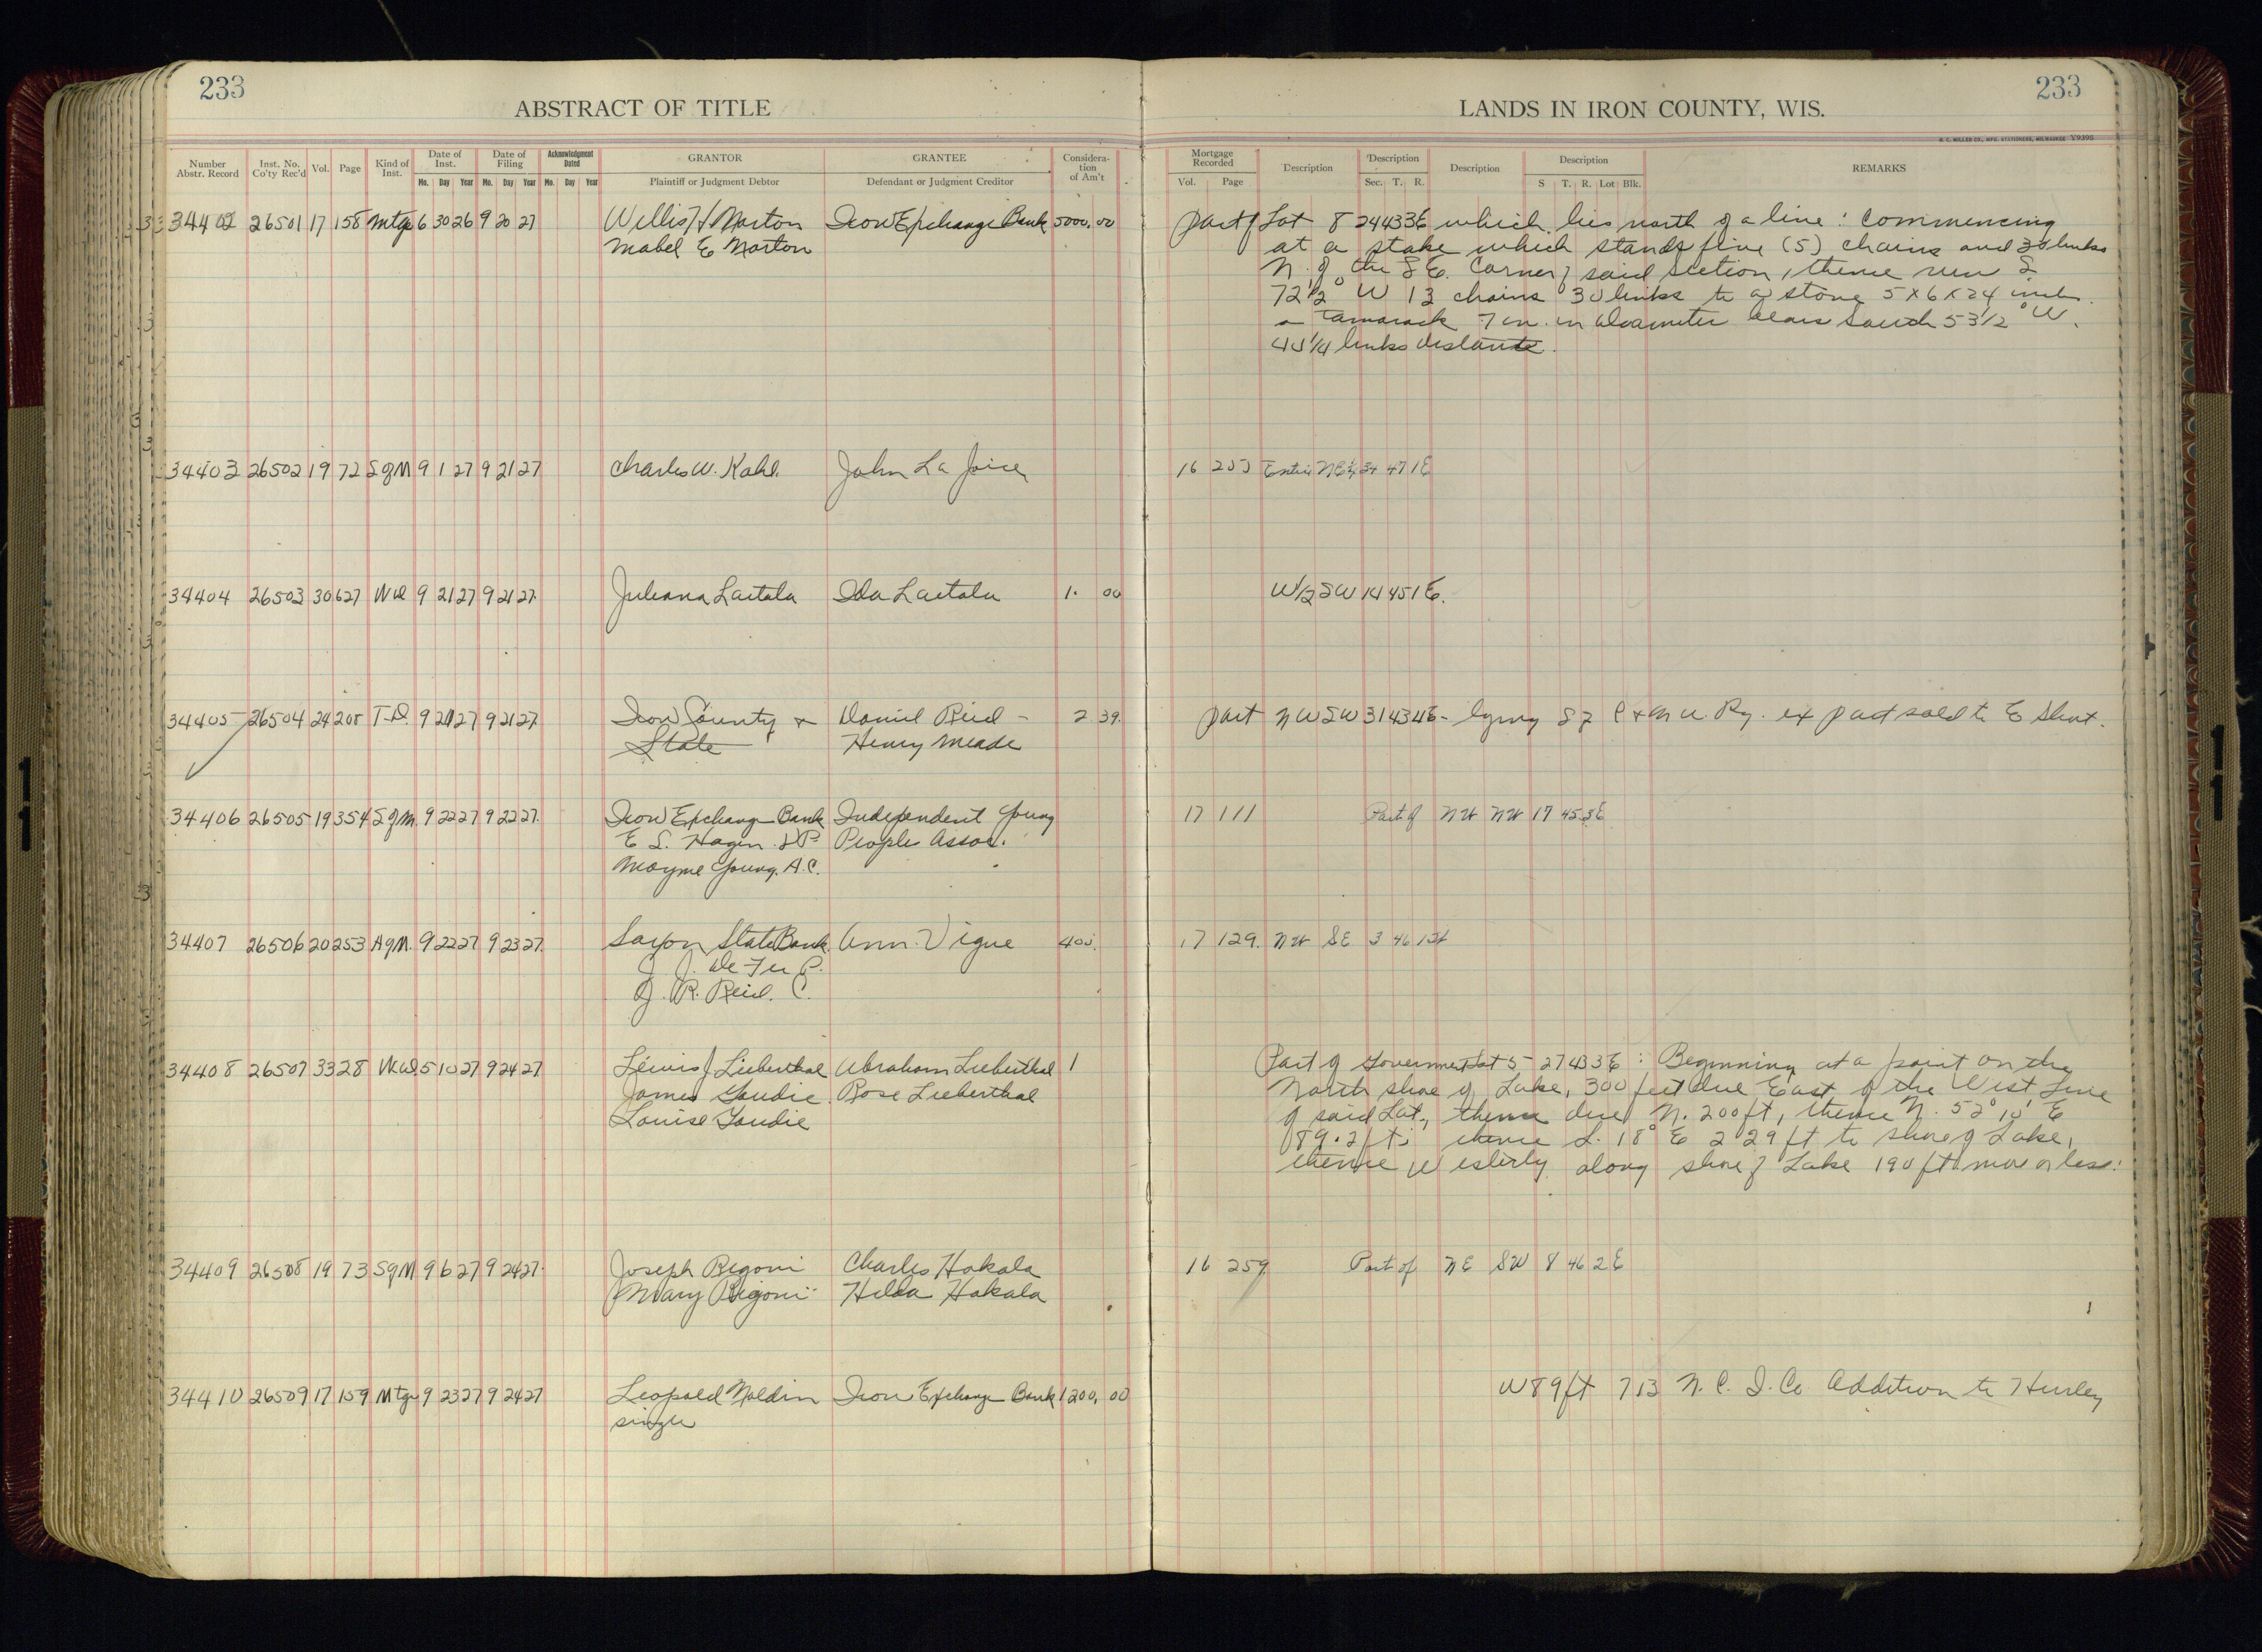 233
ABSTRACT OF TITLE
Number Abstr. Record | Inst. No. Co'ty Rec'd | Vol. | Page | Kind of Inst. | Date of Inst. Mo. Day Year | Date of Filing Mo. Day Year | Acknowledgment Dated Mo. Day Year | GRANTOR Plaintiff or Judgment Debtor | GRANTEE Defendant or Judgment Creditor | Consideration of Am't
34402 26501 17 158 Mtg 6 30 26 9 20 27 Willis H Norton Iron Exchange Bank 5000.00
Mabel E Norton
34403 26502 19 72 SgM 9 1 27 9 21 27 Charles W. Kahl John La Joice
34404 26503 30 627 Wd 9 21 27 9 21 27 Juliana Laitala Ida Laitala 1. 00
34405 26504 24 208 T.D. 9 21 27 9 21 27 Iron County & Daniel Reid 2 39
State Henry Meade
34406 26505 19 354 SgM 9 22 27 9 22 27 Iron Exchange Bank Independent Young
E S. Hagen. VP. Peoples Assoc.
Mayme Young. A.C.
34407 26506 20 253 AgM. 9 22 27 9 23 27 Saxon State Bank Ann Vigue 400.
J. R. Reid. C.
34408 26507 33 28 W.d. 5 10 27 9 24 27 Lewis J Lieberthal Abraham Lieberthal 1
James Goudie Rose Lieberthal
Louise Goudie
34409 26508 19 73 SgM 9 6 27 9 24 27 Joseph Rigoni Charles Hakala
Mary Rigoni Hilda Hakala
34410 26509 17 159 Mtg 9 23 27 9 24 27 Leopold Noldin Iron Exchange Bank 1200.00
single
233
LANDS IN IRON COUNTY, WIS.
H. C. MILLER CO., MFG. STATIONERS, MILWAUKEE Y9395
Mortgage Recorded Vol. Page | Description | Description Sec. T. R. | Description | Description S T. R. Lot Blk. | REMARKS
Part of Lot 8 24 43 3E which lies north of a line: Commencing
at a stake which stands five (5) chains and 30 links
N. of the S E. Corner of said section, thence run S.
72 1/2° W 13 chains 30 links to a stone 5 x 6 x 24 inches
a Tamarack 7 in. in diameter bears South 53 1/2° W.
links distant.
16 Entire NE 1/4 34 47 1E
W/2 SW 14 45 1E.
Part NW SW 31 43 4E lying S of C & N W. Ry. ex part sold to E
17 111 Part of NW NW 17 45 3E
17 129. NW SE 3 46 1W
Part of Government Lot 5 27 43 3E: Beginning at a point on the
North shore of Lake, 300 feet due East of the West Line
of said Lot, thence due N. 200 ft, thence N. 52° 10' E
89.2 ft; thence S. 18° E 229 ft to shore of Lake,
thence Westerly along shore of Lake 190 ft more or less.
16 259 Part of NE SW 8 46 2E
W 89 ft 7 13 N. C. I. Co Addition to Hurley